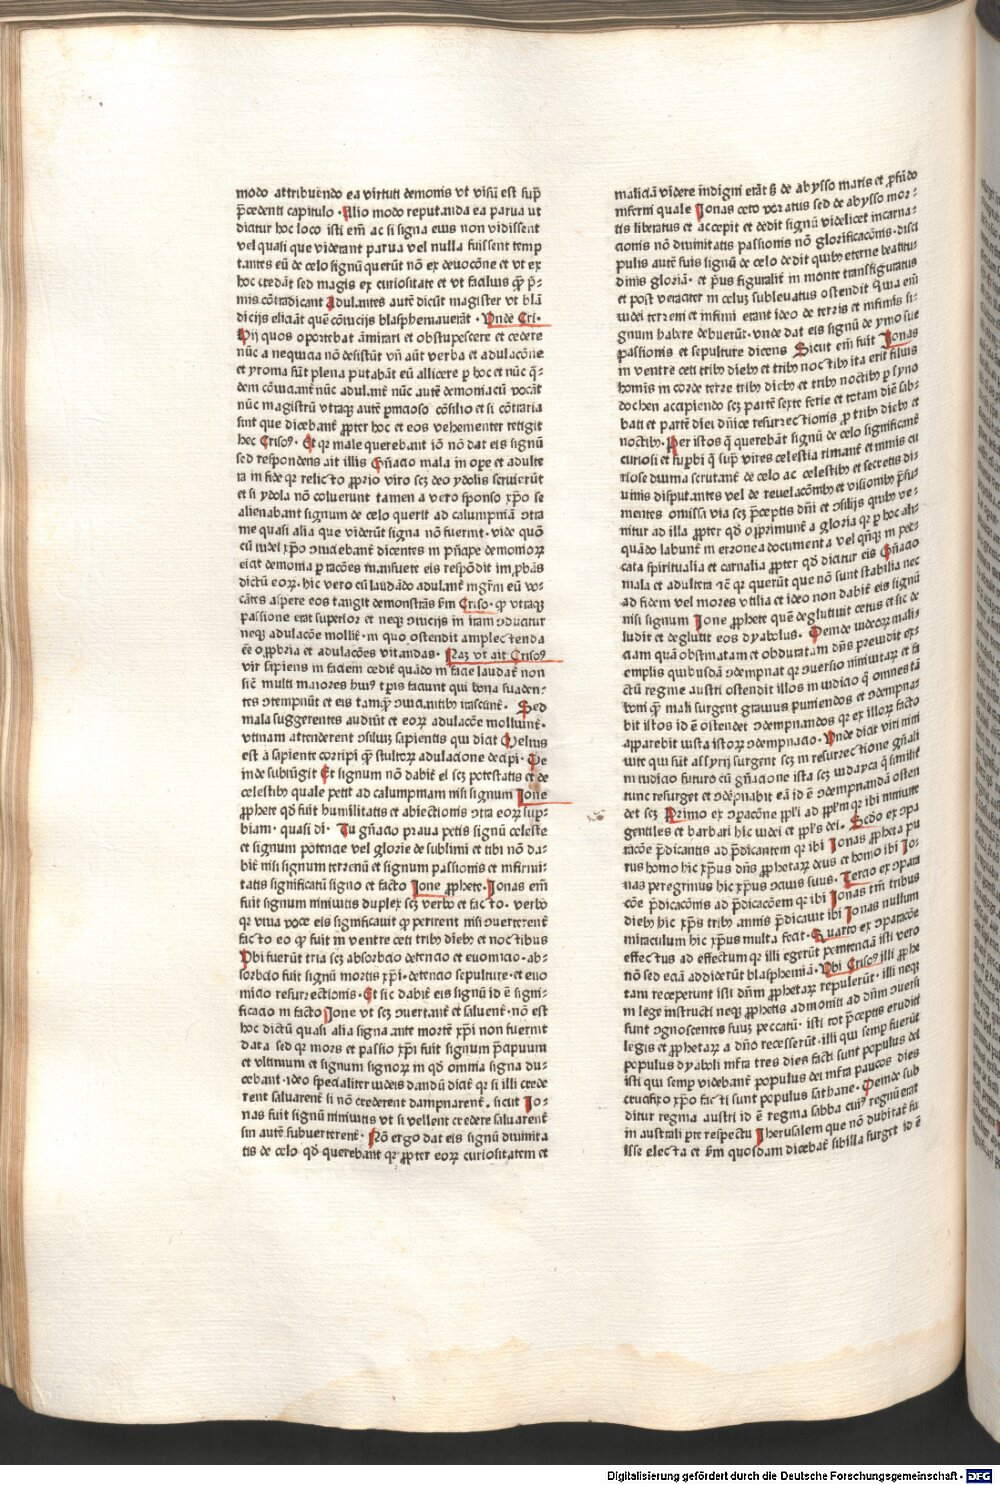 modo attribuendo ea virtuti demonis vt visū est sup̄
p̄cedenti capitulo · Alio modo reputanda ea parua ut
dicitur hoc loco isti em̄ ac si signa eius non vidissent
vel quasi que viderant parua vel nulla fuissent temp
tantes eū de celo signū querūt nō ex deuocōne et vt ex
hoc credāt sed magis ex curiositate et vt facilius q̄ p̄-
mis cōtradicant Adulantes autē dicūt magister vt blā
dicijs eliciāt quē cōuicijs blasphemauerāt · Vnde Cri·
Hij quos oportebat āmirari et obstupescere et cedere
nūc a nequicia nō desistūt vn̄ aūt verba et adulacōne
et yroma sūt plena putabāt eū allicere p̱ hoc et nūc q̄-
dem cōuiciant̄ nūc adulant̄ nūc autē demoniacū vocāt
nūc magistrū vtraq̨ autē p̱nicioso cōsilio et si cōtraria
sint que dicebant̄ ꝓpter hoc et eos vehementer tetigit
hec Crisoꝰ · Et qꝛ male querebant iō nō dat eis signū
sed respondens ait illis Gn̄acio mala in oꝑe et adulte
ra in fide qꝛ relicto ꝓprio viro scꝫ deo ydolis seruierūt
et si ydola nō coluerunt tamen a vero sponso xp̄o se
alienabant signum de celo querit ad calumpniā ꝯtra
me quasi alia que viderūt signa nō fuerint · vide quō
cū iudei xp̄o ꝯuiciebant̄ dicentes in p̄ncipe demonioꝝ
eicit demonia p̱ racōes mansuete eis respōdit improbās
dictū eoꝝ · hic vero cū laudādo adulant̄ mgr̄m eū vo-
cātes aspere eos tangit demonstrās ẜm Criso · ꝙ vtraqꝫ
passione erat superior et neqꝫ ꝯuicijs in iram ꝯducitur
neqꝫ adulacōne mollit̄ · in quo ostendit amplectenda
eē opprobria et adulacōes vitandas · Nam vt ait Crisoꝰ
vir sapiens in faciem cedit̄ quādo in facie laudat̄ non
sic̄ multi maiores huiꝰ tp̱ris faciunt qui bona suaden-
tes ꝯtempnūt et eis tamqꝫ ꝯuiciantibꝫ irascunt̄ · Sed
mala suggerentes audiūt et eoꝝ adulacōe molliunt̄ ·
vtinam attenderent ꝯsiliuꝫ sapientis qui dicit Melius
est a sapiente corripi q̄ stultoꝝ adulacione decipi · De
inde subiūgit Et signum nō dabit̄ ei scꝫ potestatis et de
celestibꝫ quale petit ad calumpniam nisi signum Jone
ꝓphete qd̄ fuit humilitatis et abiectionis ꝯtra eoꝝ sup̱-
biam · quasi di · Tu gn̄acio praua petis signū celeste
et signum potencie vel glorie de sublimi et tibi nō da-
bit̄ nisi signum terrenū et signum passionis et infirmi-
tatis significatū signo et facto Jone ꝓphete · Jonas em̄
fuit signum niniuitis duplex scꝫ verbo et facto · verbo
qꝛ viua voce eis significauit ꝙ perirent nisi ꝯuerterent̄
facto eo ꝙ fuit in ventre ceti tribꝫ diebꝫ et noctibus
Vbi fuerūt tria scꝫ absorbcio detencio et euomicio · ab-
sorbcio fuit signū mortis xp̄i · detencio sepulture · et euo
micio resurrectionis · Et sic dabit̄ eis signū id ē signi-
ficacio in facto Jone vt scꝫ ꝯuertant̄ et saluent̄ · nō est
hoc dictū quasi alia signa ante mortē xp̄i non fuerint
data sed qꝛ mors et passio xp̄i fuit signum p̄cipuum
et vltimum et signum signoꝝ in qd̄ omnia signa du-
cebant · ideo specialiter iudeis dandū dicit̄ qꝛ si illi crede
rent saluarent̄ si nō crederent dampnarent̄ · sicut Jo-
nas fuit signū niniuitis vt si vellent credere saluarent̄
sin autē subuerterent̄ · Nō ergo dat eis signū diuinita
tis de celo qd̄ querebant qꝛ ꝓpter eoꝝ curiositatem et
maliciā videre indigni erāt ß de abysso maris et ꝓfūdo
inferni quale Jonas ceto voratus sed de abysso mor-
tis liberatus et accepit et dedit signū videlicet incarna-
cionis nō diuinitatis passionis nō glorificacōnis · disci
pulis autē suis signū de celo dedit quibꝫ eterne beatitu
dinis gloriā · et p̄us figuralit̄ in monte transfiguratus
et post veraciter in celuꝫ subleuatus ostendit Quia em̄
iudei terreni et infimi erant ideo de terris et infimis si-
gnum habere debuerūt · vnde dat eis signū de ymo sue
passionis et sepulture dicens Sicut em̄ fuit Jonas
in ventre ceti tribꝫ diebꝫ et tribꝫ noctibꝫ ita erit filius
homīs in corde terre tribꝫ diebꝫ et tribꝫ noctibꝫ p̱ syno
dochen accipiendo scꝫ partē sexte ferie et totam diē sab-
bati et partē diei dn̄ice resurrectionis p̱ tribꝫ diebꝫ et
noctibꝫ · Per istos q̄ querebāt signū de celo significant̄
curiosi et sup̱bi q̄ sup̱ vires celestia rimant̄ et nimis cu
riose diuina scrutant̄ de celo ac celestibꝫ et secretis di-
uinis disputantes vel de reuelacōnibꝫ et visionibꝫ p̄sū-
mentes omissa via scꝫ p̄ceptis dn̄i et ꝯsilijs quibꝫ ve-
nitur ad illa ꝓpter qd̄ opprimunt̄ a gloria qꝛ p̱ hoc ali-
quādo labunt̄ in erronea documenta vel qn̄qꝫ in pec-
cata spiritualia et carnalia ꝓpter qd̄ dicitur eis Gn̄acio
mala et adultera ⁊c̄ qꝛ querūt que nō sunt stabilia nec
ad fidem vel mores vtilia et ideo non dabit̄ eis signū
nisi signum Jone ꝓphete quē deglutiuit cetus et sic de
ludit et deglutit eos dyabolus · Deinde iudeoꝝ mali-
ciam quā obstinatam et obduratam dn̄s preuidit ex-
emplis quibusdā ꝯdempnat qꝛ ꝯuersio niniuitaꝝ et fa
ctū regine austri ostendit illos in iudicio q̄ omnes tā
boni q̄ mali surgent grauius puniendos et ꝯdempnaꝫ
bit istos id ē ostendet ꝯdempnandos qꝛ ex illoꝝ facto
apparebit iusta istoꝝ ꝯdempnacio · Vnde dicit viri nini
uite qui sūt assyrij surgent scꝫ in resurrectione gn̄ali
in iudicio futuro cū gn̄acione ista scꝫ iudayca q̄ similit̄
tunc resurget et ꝯdēpnabit eā id ē ꝯdempnandā osten
det scꝫ Primo ex ꝯparacōne pp̱li ad pp̱lm qꝛ ibi niniuite
gentiles et barbari hic iudei et pp̱ls dei · Scd̄o ex ꝯpa
racōe p̄dicantis ad p̄dicantem qꝛ ibi Jonas ꝓpheta pu
rus homo hic xp̄us dn̄s ꝓphetaꝝ deus et homo ibi Jo-
nas peregrinus hic xp̄us ꝯciuis suus · Tercio ex ꝯpara
cōe p̄dicacōnis ad p̄dicacōem qꝛ ibi Jonas tm̄ tribus
diebꝫ hic xp̄us tribꝫ annis p̄dicauit ibi Jonas nullum
miraculum hic xp̄us multa fecit · Quarto ex ꝯparacōe
effectus ad effectum qꝛ illi egerūt penitenciā isti vero
nō sed eciā addiderūt blasphemiā · Vbi Crisoꝰ illi ꝓphe
tam receperunt isti dn̄m ꝓphetaꝝ repulerūt · illi neqꝫ
in lege instructi neqꝫ ꝓphetis admoniti ad dn̄m ꝯuersi
sunt ꝯgnoscentes suuꝫ peccatū · isti tot p̄ceptis eruditi
legis et ꝓphetaꝝ a dn̄o recesserūt · illi qui semp̱ fuerūt
populus dyaboli infra tres dies facti sunt populus dei
isti qui semp̱ videbant̄ populus dei infra paucos dies
crucifixo xp̄o facti sunt populus sathane · Deinde sub
ditur regina austri id ē regina sabba cuiꝰ regnū erat
in australi pte respectu Jherusalem que nō dubitat̄ fu
isse electa et ẜm quosdam dicebat̄ sibilla surget id ē
Digitalisierung gefördert durch die Deutsche Forschungsgemeinschaft - DFG